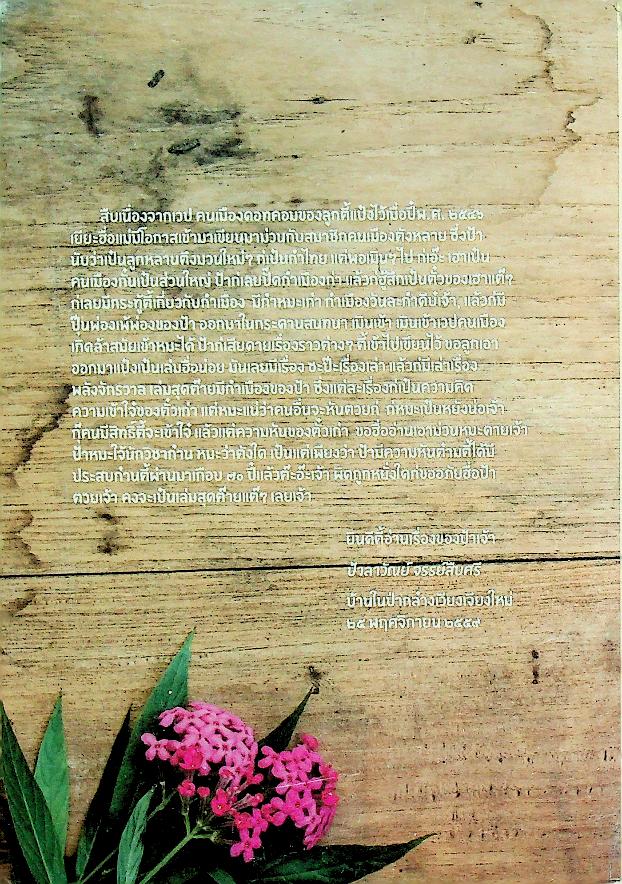 สืบเนื่องจากเวป คนเมืองดอทคอมของลูกตี้แป๋งไว้เมื่อปี๋พ.ศ. ๒๕๔๖
เยียะฮื่อแม่มีโอกาสเข้ามาเขียนมาม่วนกับสมาชิกคนเมืองตังหลาย ซึ่งป้า
นับว่าเป๋นลูกหลานตึงมวนใหม่ๆ ก่เป๋นกำไทย แต่พอเมินๆ ไป ก่เอ๊ะ เฮาเป๋น
คนเมืองกั๋นเป๋นส่วนใหญ่ ป้าก่เลยปิ๊กกำเมืองก่า แล้วก่ฮู้สึกเป๋นตั๋วของเฮาแต๊ๆ
ก่เลยมีกระทู้ตี้เกี่ยวกับกำเมือง มีกำหมะเก่า กำเมืองวันละกำคีบ่เจ้า, แล้วก่มี
ปื๊นพ่องเพ้พ่องของป้า ออกมาในกระดานสนทนา เมินเข้า เมินเข้าเวปคนเมือง
เกิดล้าสมัยเข้าหมะได้ ป้าก่เสียดายเรื่องราวต่างๆ ที่เข้าไปเขียนไว้ ขอลูกเอา
ออกมาแป๋งเป๋นเล่มฮื่อน่อย มันเลยมีเรื่อง ซะป๊ะเรื่องเล่า แล้วก่มีเล่าเรื่อง
พลังจักรวาล เล่มสุดต๊ายมีกำเมืองของป้า ซึ่งแต่ละเรื่องก่เป๋นความคิด
ความเข้าใจ๋ของตั๋วเก่า แต่หมะแน่ว่าคนอื่นจะหันตวยก่ ก่หมะเป๋นหยังน่อเจ้า
ก้คนมีสิทธิ์ตี้จะเข้าใจ๋ แล้วแต่ความหันของตั๋วเก่า ขอฮื่ออ่านเอาม่วนหมะดายเจ้า
ป้าหมะใจ้นักวิชาก๋าน หมะว่าตังใด เป๋นแต่เพียงว่า ป้ามีความหันต๋ามตี้ได้มี
ประสบก๋านตี้ผ่านมาเกือบ ๗๐ ปี๋แล้วต๊ะอ๊ะเจ้า ผิดถูกหยั่งใดก่ขออภัยฮื่อป้า
ตวยเจ้า คงจะเป๋นเล่มสุดต๊ายแต๊ๆ เลยเจ้า
ยินดีตี้อ่านเรื่องของป้าเจ้า
ป้าลาวัณย์ จรรย์สืบศรี
บ้านในป่ากล๋างเวียงเจียงใหม่
๒๕ พฤศจิกายน ๒๕๕๙